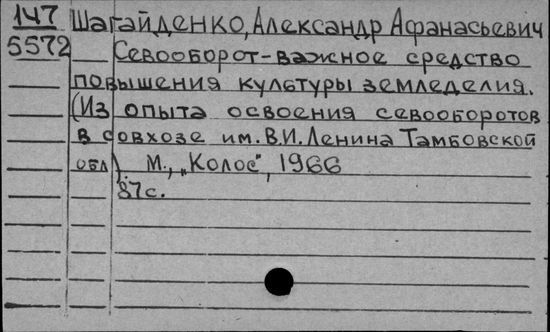 147 Шагайденко, Александр Афанасьевич
5572 Севооборот-важное средство
повышения культуры земледелия.
(Из опыта освоения севооборотов
в совхозе им. В.И. Ленина Тамбовской
обл). М., „Колос", 1966
87с.